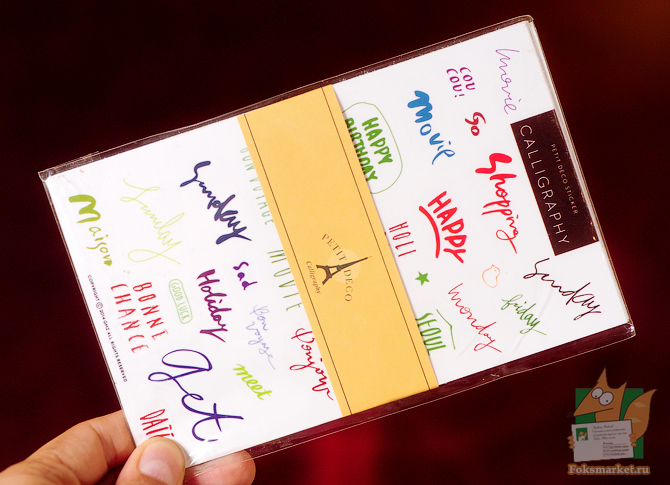 movie
COU
COU!
So
Movie
Shopping
PETIT DECO STICKER
CALLIGRAPHY
HAPPY
BIRTHDAY
HAPPY
HOLI
Sunday
friday
monday
SEOUL
PETIT DECO
Calligraphy
BON VOYAGE
MOVIE
Bonjour
Sunday
Sunday
Maison
Sad
Holiday
GOOD LUCK
BONNE
CHANCE
Bon
voyage
meet
get
DATE
ALL RIGHTS RESERVED
Foksmarket.ru